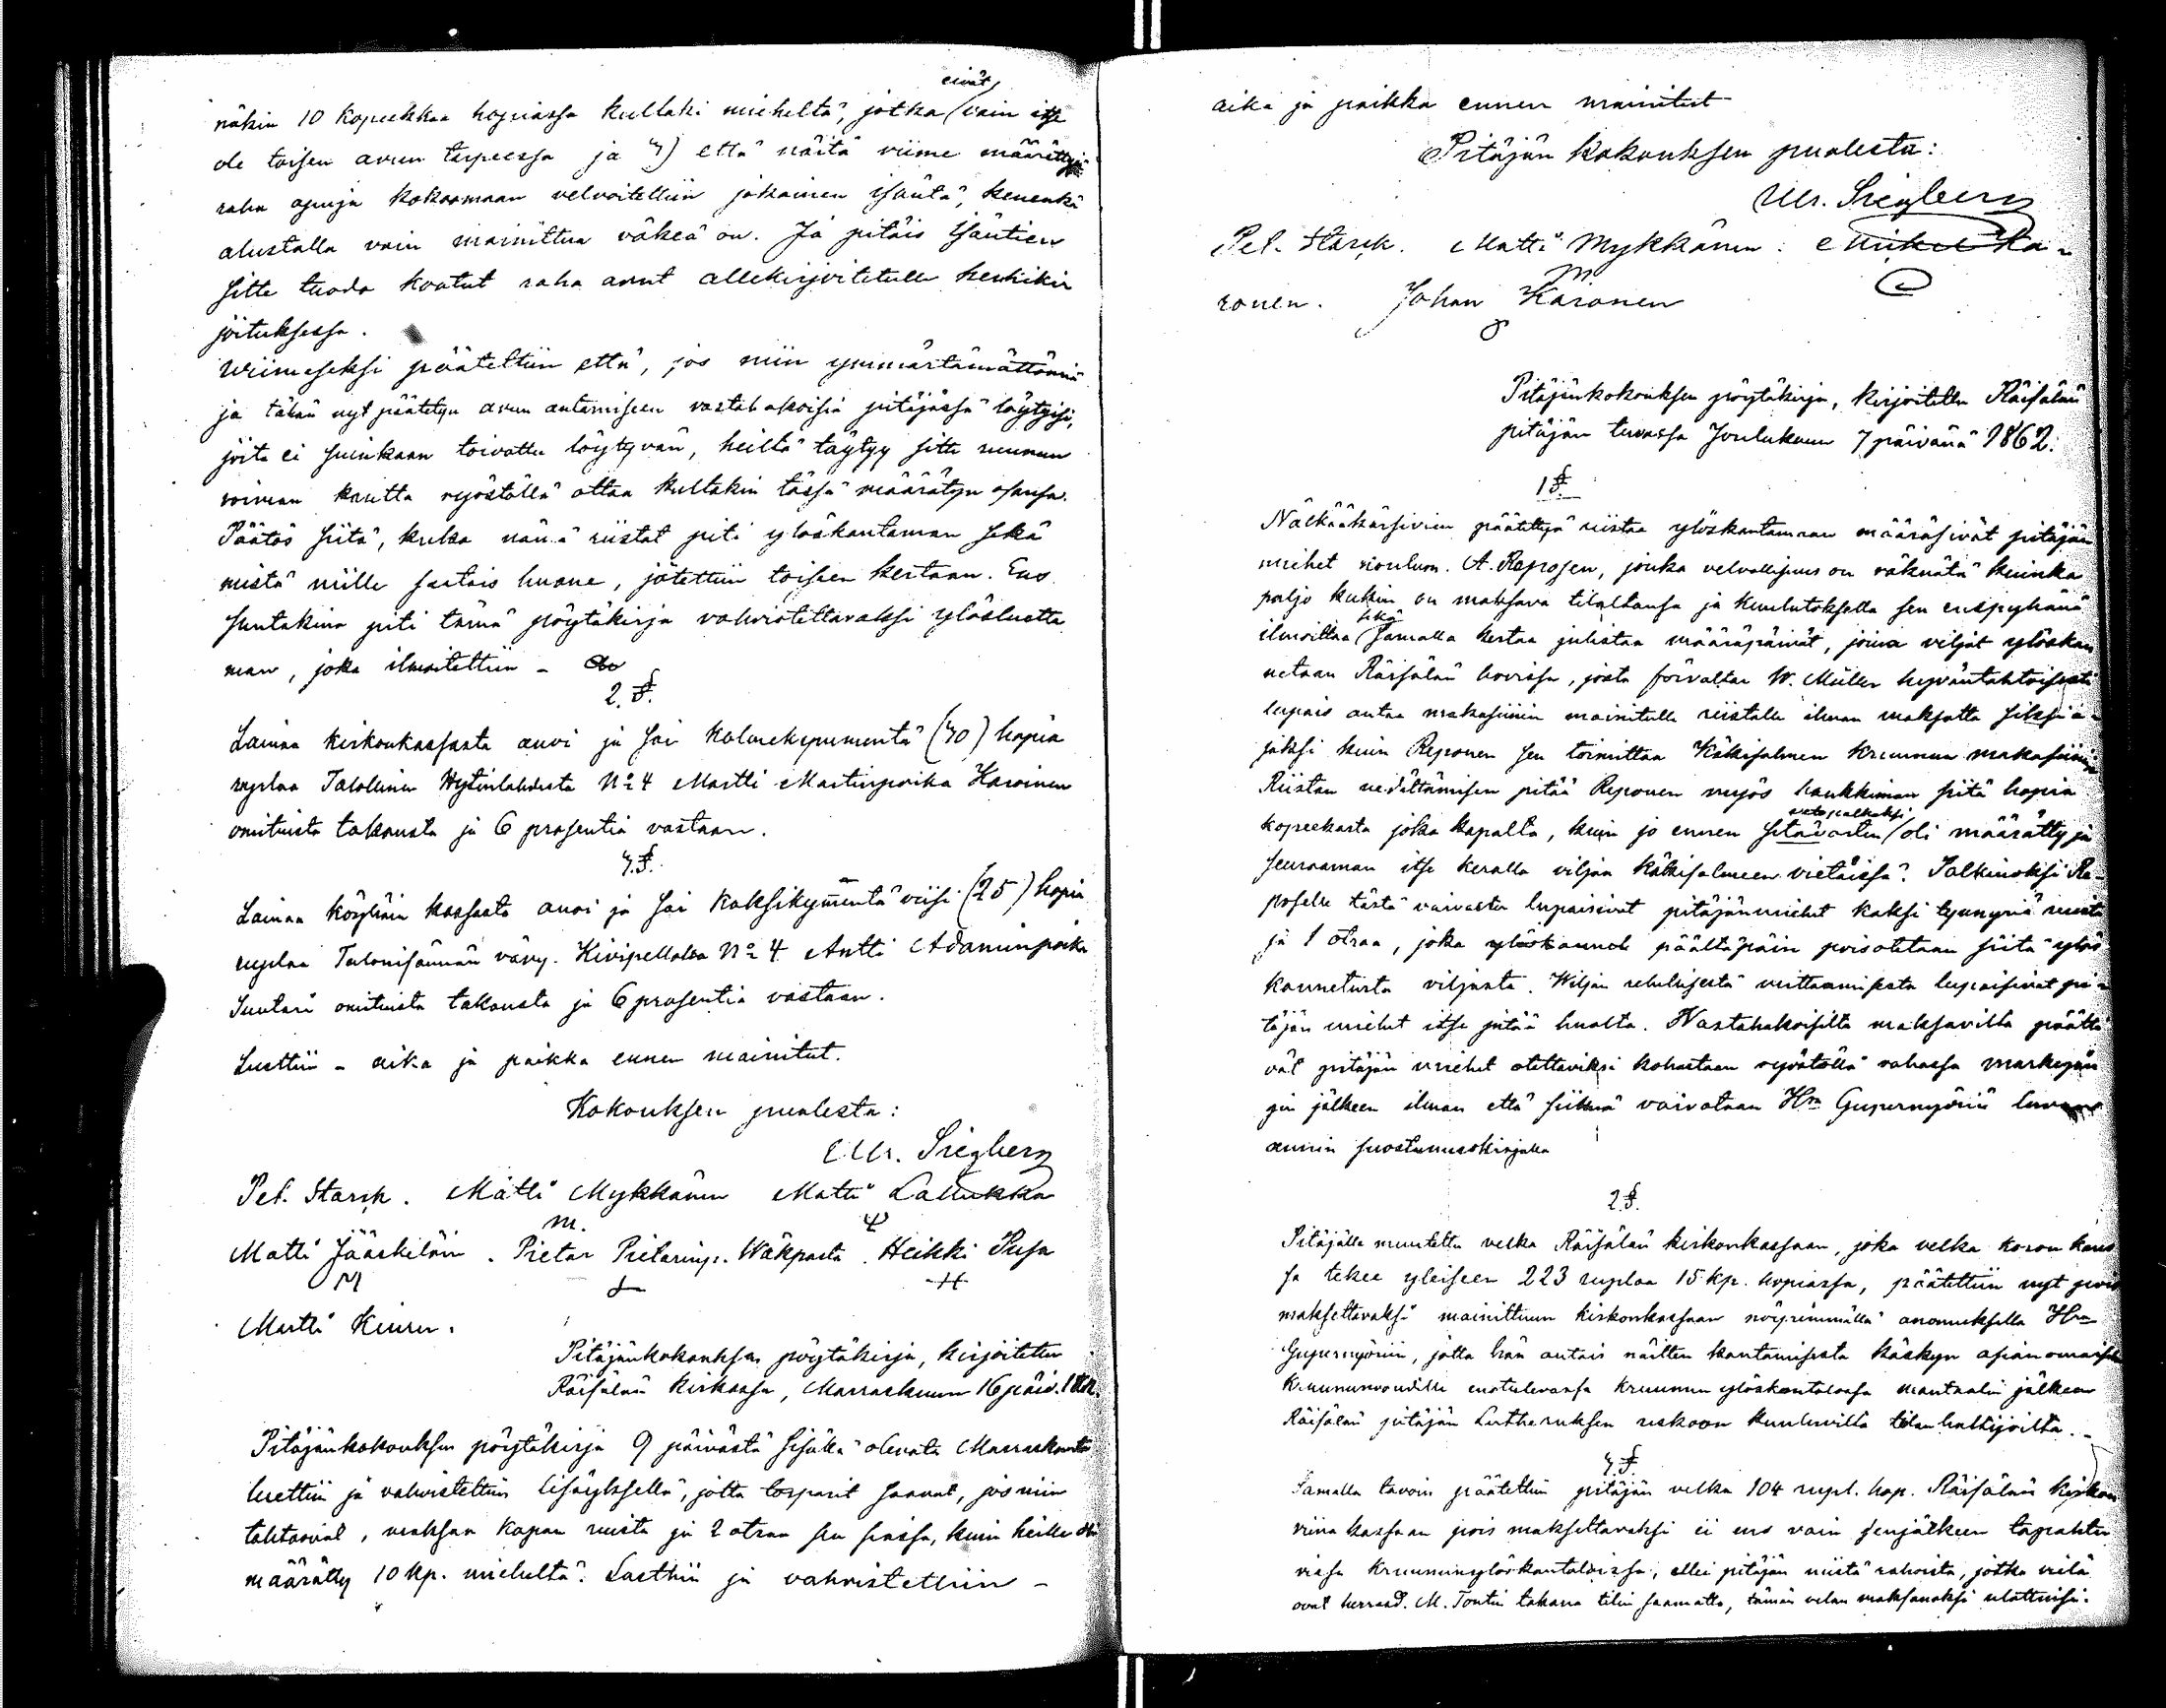 eivät
näkin 10 kopeekkaa hopiassa kultaki mieheltä, jotka vain itse
ole toisen avun tarpeessa ja 3) että näitä viime määrättyjä
raha apuja kokoomaan velvoitettiin jokainen isäntä, kenenkä
alustalla vain mainittua väkeä on. Ja pitäis isäntien
sitte tuoda kootut raha avut allekirjoitetulle henkikir
joituksessa.
Wiimeseksi pääteltiin että, jos niin ymmärtämättömiä
ja tähän nyt päätetyn avun antamiseen vastahakoisia pitäjässä löytyisi,
joita ei suinkaan toivottu löytyvän, heiltä täytyy sitte ruunun
voiman kautta ryöstöllä ottaa kultakin tässä määrätyn osansa.
Päätös siitä, kuka nämä riistat piti ylöskantaman sekä
mistä niille saatais huone, jätettiin toiseen kertaan. Ens
suntakina piti tämä pöytäkirja vahvistettavaksi ylösluetta
man, joka ilmoitettiin -
2 §.
Lainaa kirkonkassasta anoi ja sai kolmekymmentä (30) hopia
ruplaa Talollinen Hytinlahdesta No 4 Martti Martinpoika Karoinen
omituista takausta ja 6 prosentia vastaan.
3 §.
Lainaa köyhäin kassasta anoi ja sai kaksikymmentä viisi (25) hopia
ruplaa Talonisännän vävy. Kivipellolta No 4 Antti Adaminpoika
Suutari omituista takausta ja 6 prosentia vastaan.
Luettiin - aika ja paikka ennen mainitut.
Kokouksen puolesta:
Mr. Siegberg
Pet. Starck. Matti Mykkänen Matti Lallukka
Matti Jääskeläin. Pietar Pietarinp. Wäkparta. Heikki Pusa
Martti Kiuru.
Pitäjänkokouksen pöytäkirja, kirjoitettu
Räisälän kirkossa, Marraskuun 16 päiv. 1862.
Pitäjänkokouksen pöytäkirja 9 päivästä sisällä olevata Marraskuuta
luettiin ja vahvistettiin lisäyksellä, jotta torparit saavat, jos niin
tahtoovat, maksaa kapan ruista ja 2 otraa sen siassa, kuin heille oli
määrätty 10 kp. mieheltä. Luettiin ja vahvistettiin -
aika ja paikka ennen mainitut
Pitäjän kokouksen puolesta:
Mr. Siegberg
Pet. Starck. Matti Mykkänen. Mikel Ka-
ronen. Johan Karonen
Pitäjänkokouksen pöytäkirja, kirjoitettu Räisälän
pitäjän tuvassa Joulukuun 7 päivänä 1862.
1 §.
Nälkääkärsivien päätettyä riistaa ylöskantamaan määräsivät pitäjän
miehet nioulum. A. Reposen, jonka velvollisuus on räknätä kuinka
paljo kukin on maksava tilaltansa ja kuulutoksella sen enspyhänä
sekä
ilmoittaa samalla kertaa julistaa määräpäivät, joina viljat ylöskan
netaan Räisälän hovissa, josta förvaltar W. Müller hyväntahtoisesti
lupais antaa makasiinin mainitulle riistalle ilman maksotta siksi a-
jaksi kuin Reponen sen toimittaa Käkisalmen kruunun makasiiniin
Riistan vedättämisen pitää Reponen myös hankkiman siitä hopia
vetopalkaksi
kopeekasta joka kapalta, kuin jo ennen sitä varten oli määrätty ja
seuraaman itse keralla viljaa Käkisalmeen vietäissä. Palkinoksi Re-
poselle tästä vaivasta lupaisivat pitäjänmiehet kaksi tynnyriä ruista
ja 1 otraa, joka ylöskannok päältäpäin poisotetaan siitä ylös
kannetusta viljasta. Wiljan rehellisestä mittaamisesta lupaisivat pi-
täjän miehet itse pitää huolta. Wastahakoisilta maksavilta päättä
vät pitäjän miehet otettaviksi kohastaan ryöstöllä rahassa markegän
gin jälkeen ilman että siihenä vaivataan Hra Gupernyöriä luvan
annin suostumuskirjalla
2 §.
Pitäjälle muutettu velka Räisälän kirkonkassaan, joka velka koron kans
sa tekee yleiseen 223 ruplaa 15 kp. hopiassa, päätettiin nyt pois
maksettavaksi mainittuun kirkonkassaan nöyrimmällä anomuksella Hra
Gupernyöriin, jotta hän antais näitten kantamisesta käskyn asianomaiselle
Kruununvoudille ensitulevassa kruunun ylöskantelossa mantaalin jälkeen
Räisälän pitäjän Lutheruksen uskoon kuuluvilta tilanhaltijoilta. -
3 §.
Samalla tavoin päätettiin pitäjän velka 104 rupl. hop. Räisälän kirkon
viina kassaan pois maksettavaksi ei ens vain senjälkeen tapahtu
vissa kruununylöskantaloissa, ellei pitäjän niistä rahoista, jotka vielä
ovat herrasd. M. Tontin takana tilin saamatta, tämän velan maksanaksi ulottuisi.